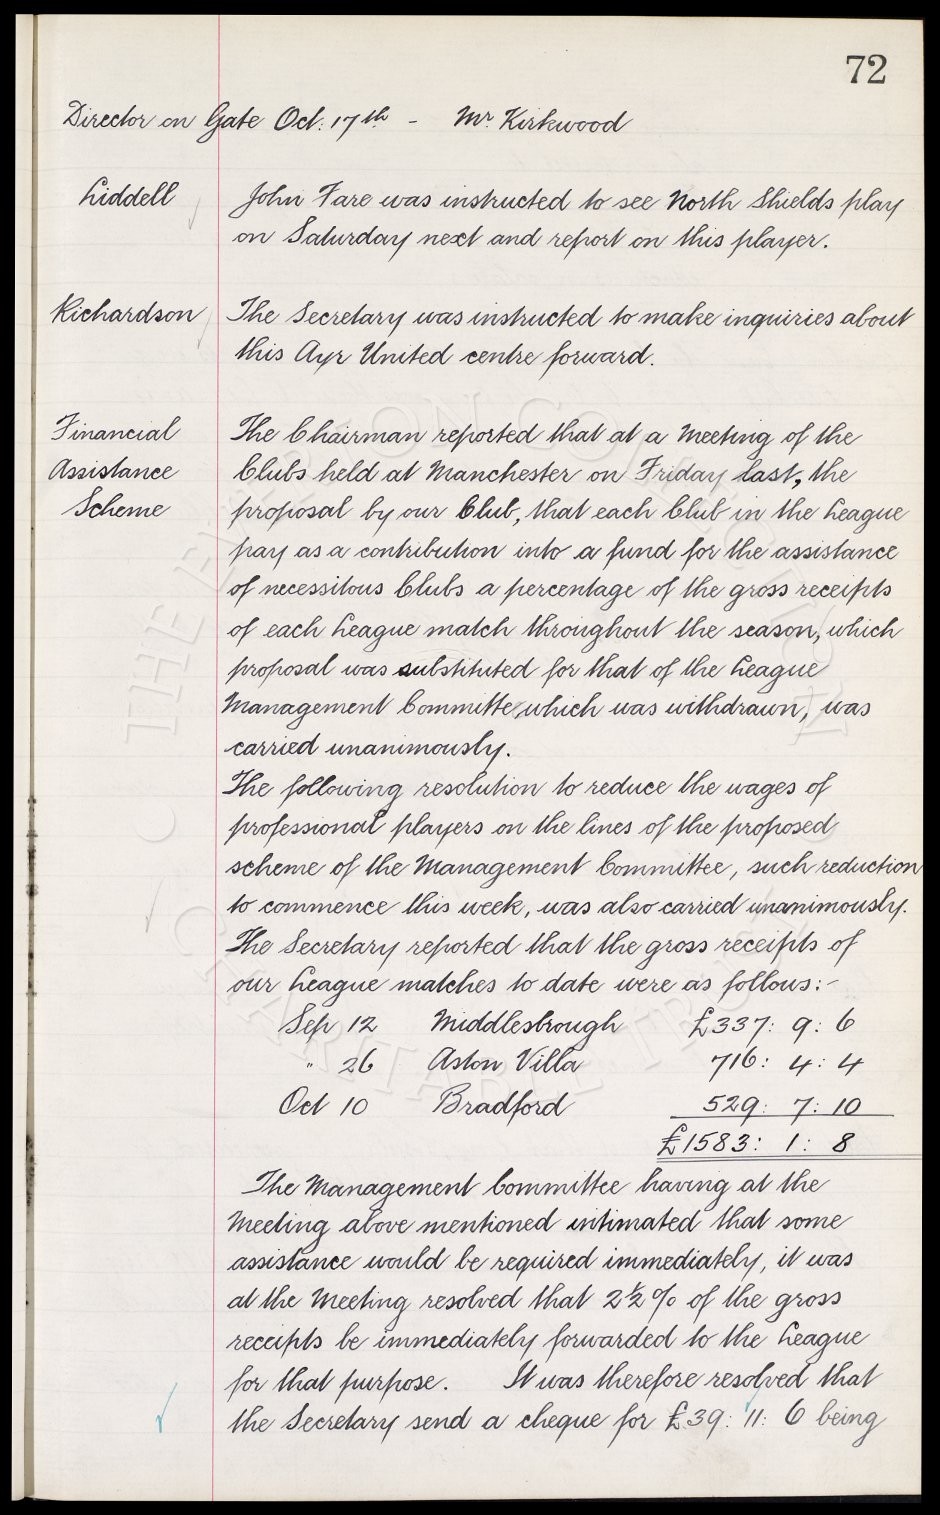 72
Director on Gate Oct: 17th - Mr Kirkwood
Liddell John Fare was instructed to see North Shields play
on Saturday next and report on this player.
Richardson The Secretary was instructed to make inquiries about
this Ayr United centre forward.
Financial The Chairman reported that at a Meeting of the
Assistance Clubs held at Manchester on Friday last, the
Scheme proposal by our Club, that each Club in the League
pay as a contribution into a fund for the assistance
of necessitous Clubs a percentage of the gross receipts
of each League match throughout the season, which
proposal was substituted for that of the League
Management Committe, which was withdrawn, was
carried unanimously.
The following resolution to reduce the wages of
professional players on the lines of the proposed
scheme of the Management Committee, such reduction
to commence this week, was also carried unanimously.
The Secretary reported that the gross receipts of
our League matches to date were as follows:-
Sep 12 Middlesbrough £337: 9: 6
" 26 Aston Villa 716: 4: 4
Oct 10 Bradford 529: 7: 10
£1583: 1: 8
The Management Committee having at the
Meeting above mentioned intimated that some
assistance would be required immediately, it was
at the Meeting resolved that 2½% of the gross
receipts be immediately forwarded to the League
for that purpose. It was therefore resolved that
the Secretary send a cheque for £39: 11: 6 being